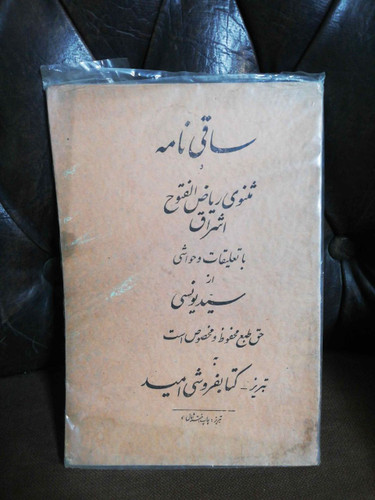 ساقی نامه
و
مثنوی ریاض الفتوح
اشراق
با تعلیقات و حواشی
از
سید یونسی
حق طبع محفوظ و مخصوص است
به
تبریز - کتابفروشی امید
تبریز، چاپ